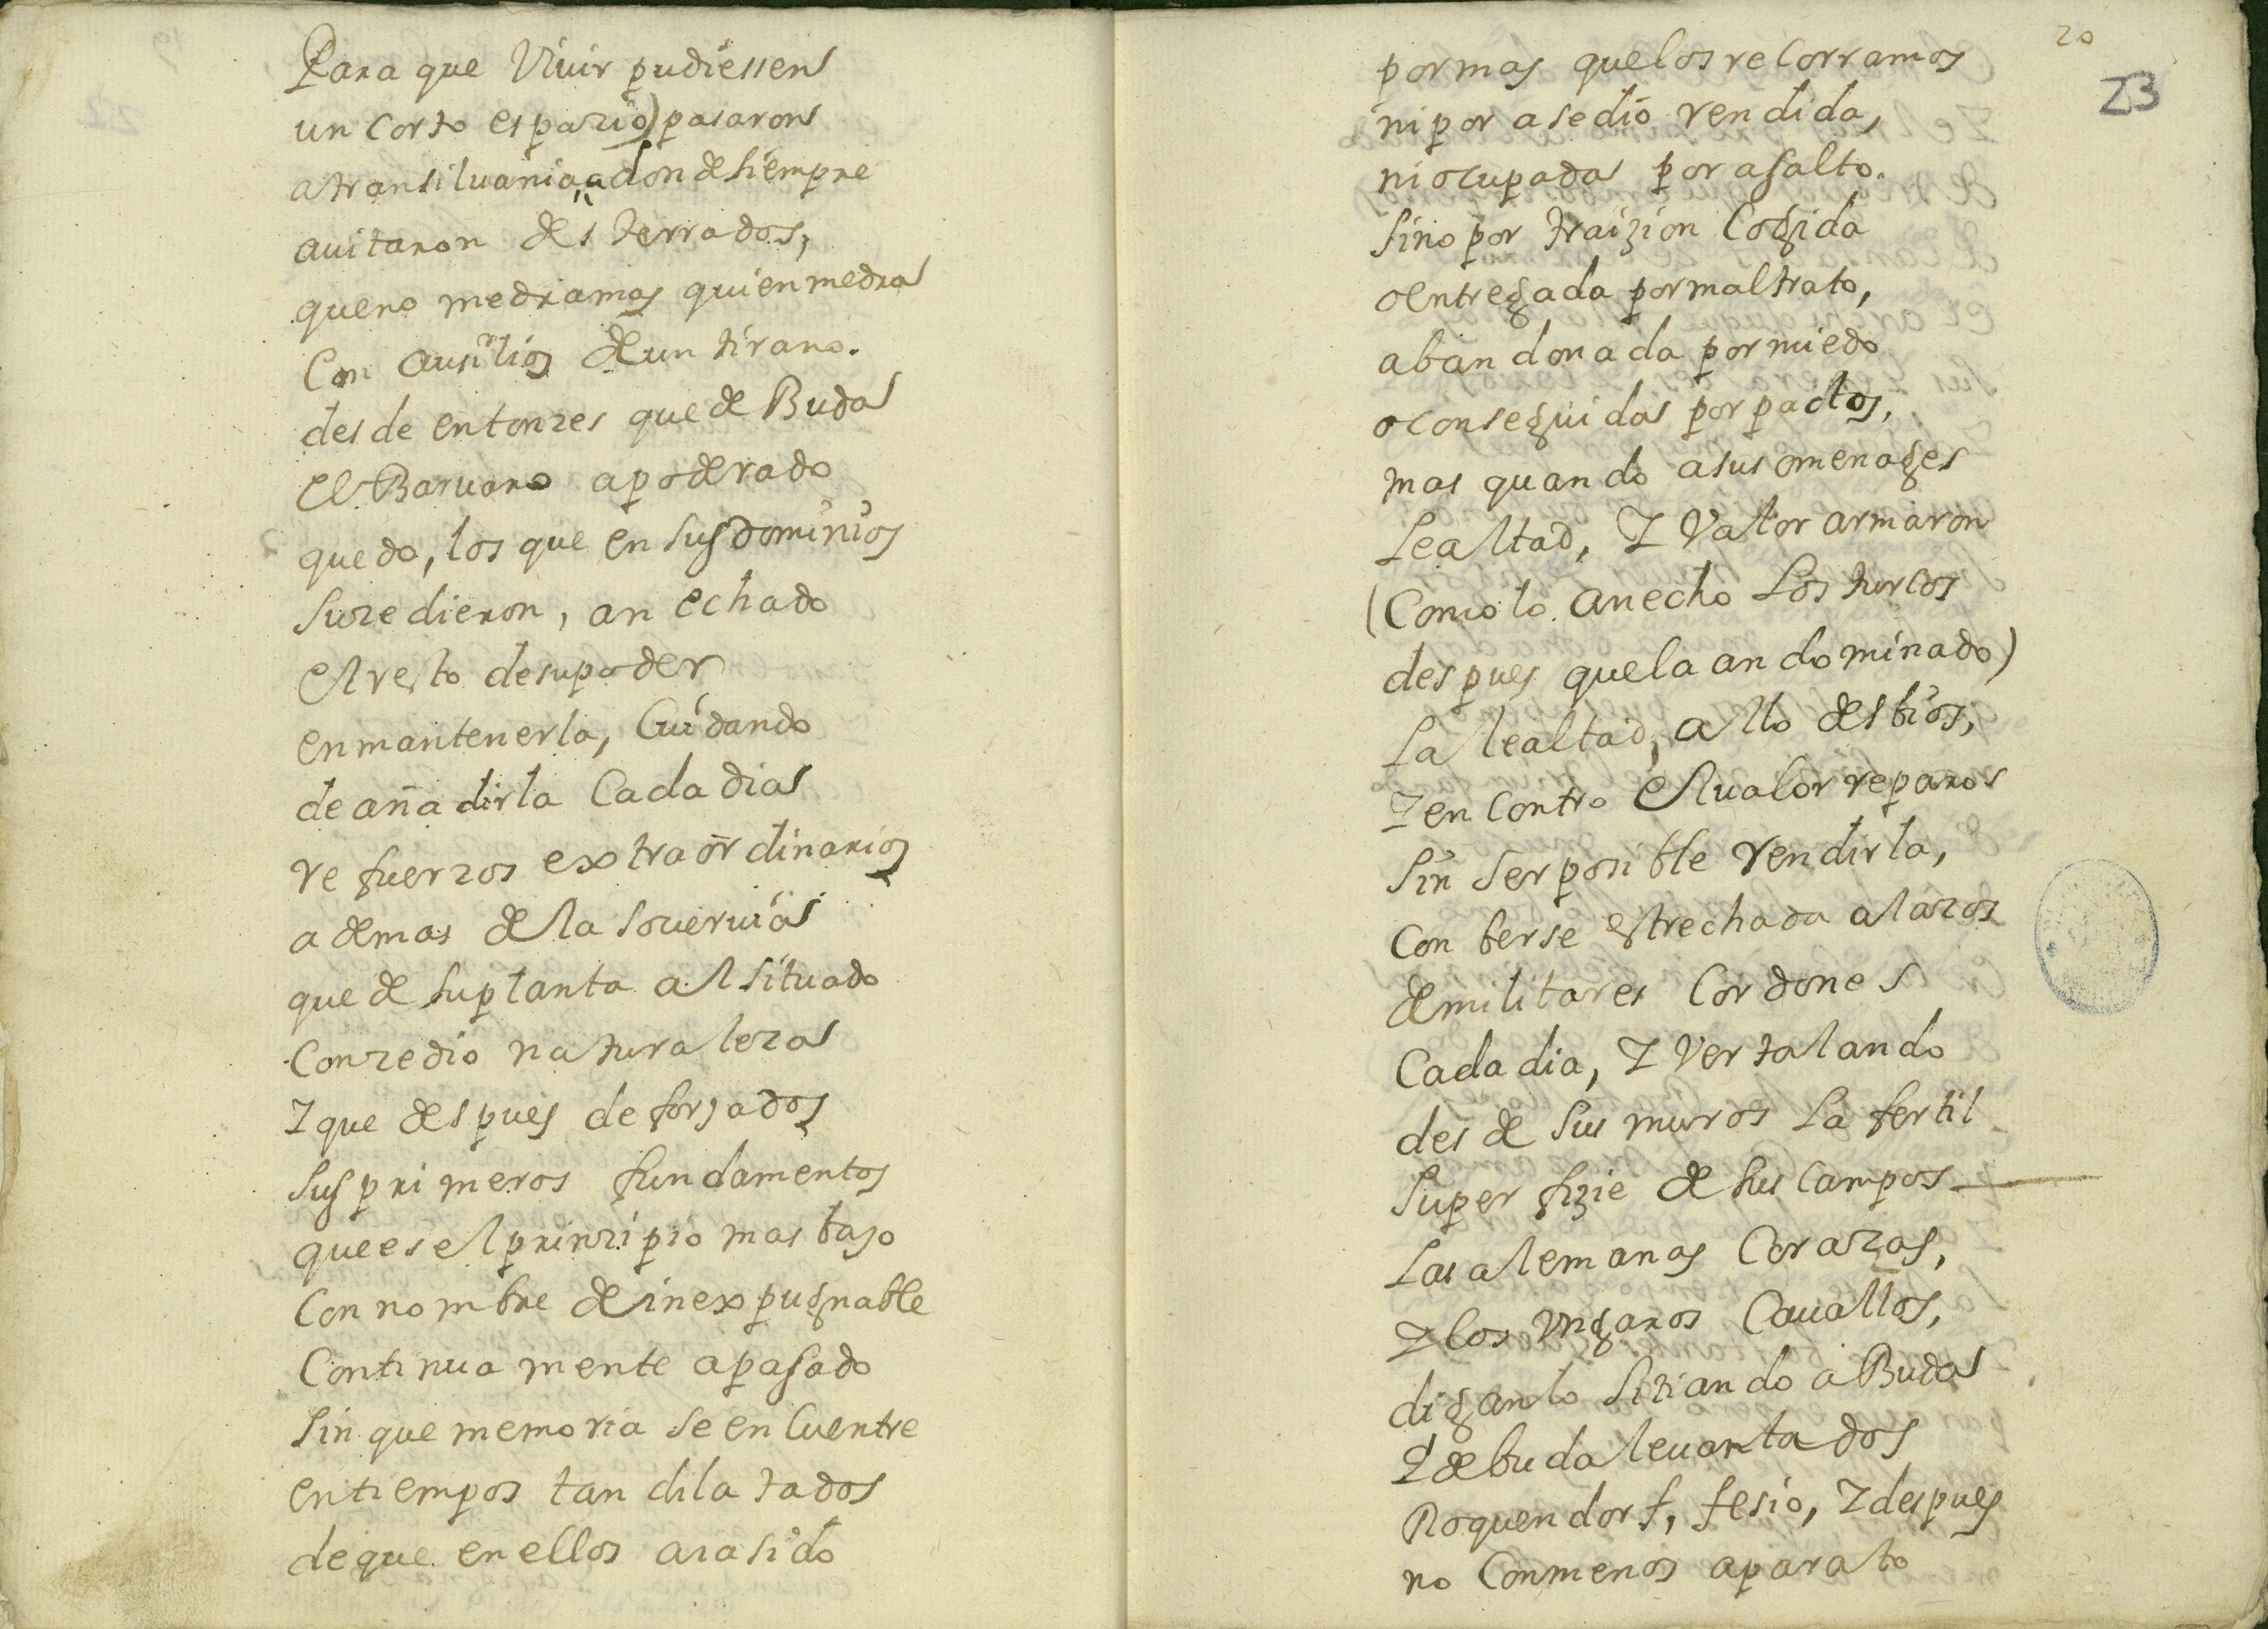 Para que Viuir pudiessen
un corto espazio) pasaron
a transiluania, adonde siempre
auitaron desterrados,
que no medramas quien medra
Con ausilios de un tirano.
desde entonzes que de Buda
el Baruaro apoderado
quedo, los que en sus dominios
suzedieron, an echado
el resto de su poder
en mantenerla, Cuidando
de añadirla Cada dia
refuerzos extraordinarios
ademas de la souervia
que de su planta al situado
Conzedio naturaleza
I que despues de forjados
sus primeros fundamentos
que es el prinzipio mas bajo
Con nombre de inexpugnable
Continuamente a pasado
sin que memoria se encuentre
en tiempos tan dilatados
de que en ellos aia sido
20
23
por mas que los recorramos
ni por asedio rendida,
ni ocupada por asalto.
sino por traizion Cogida
o entregada por mal trato,
abandonada por miedo
o conseguida por pactos,
mas quando a sus omenages
Lealtad, I Valor armaron
(Como lo an echo Los turcos
despues que la an dominado)
La lealtad, allo desbios,
I encontro el ualor reparos
sin ser posible rendirla,
Con berse estrechada a lazos
de militares Cordones
Cada dia, I Ver talando
desde sus muros La fertil
superfizie de sus campos
Las alemanas Corazas,
I los Vngaros Cauallos,
diganlo sitiando a Buda
I de buda leuantados
Roquendorf, fesio, I despues
no Con menos aparato